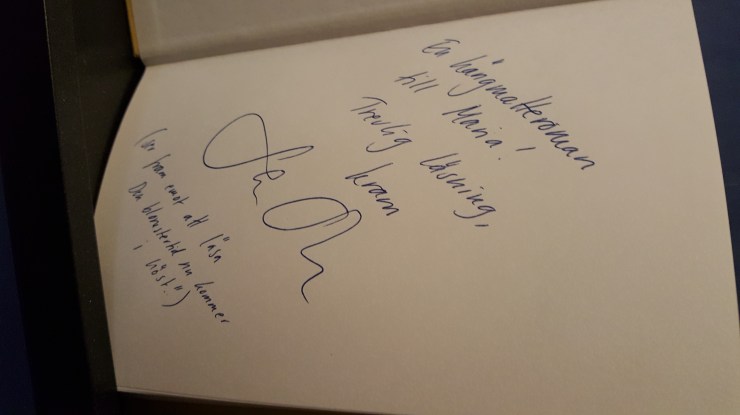 En hängmatteroman
till Maria!
Trevlig läsning,
kram
(Ser fram emot att läsa
Den blomstertid nu kommer
i höst!")